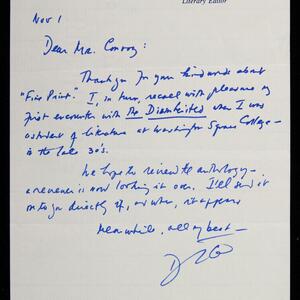 Literary Editor
Nov 1
Dear Mr. Conroy:
Thank you for your kind words about
"Fine Print." I, in turn, recall with pleasure my
first encounter with The Disinherited when I was
a student of literature at Washington Square College –
in the late 30's.
We hope to review the anthology –
a reviewer is now looking it over. I'll send it
on to you directly if, or when, it appears
Meanwhile, all my best –